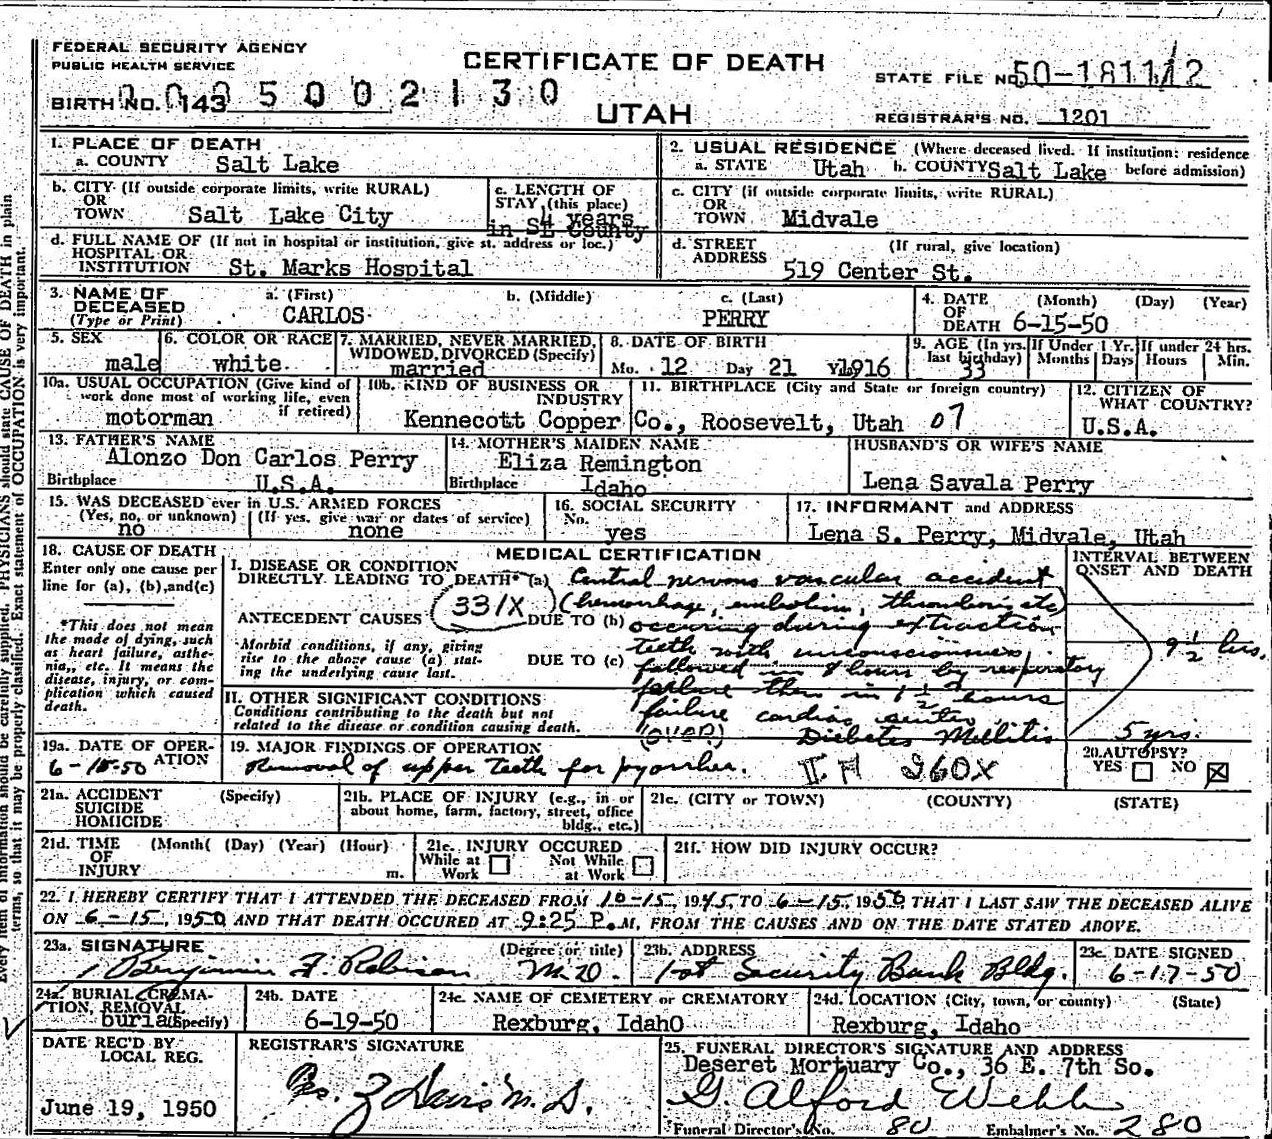 FEDERAL SECURITY AGENCY
PUBLIC HEALTH SERVICE
CERTIFICATE OF DEATH
STATE FILE NO. 50-181112
BIRTH NO. 143
005002130
UTAH
REGISTRAR'S NO. 1201
1. PLACE OF DEATH
a. COUNTY Salt Lake
2. USUAL RESIDENCE (Where deceased lived. If institution: residence before admission)
a. STATE Utah b. COUNTY Salt Lake
b. CITY (If outside corporate limits, write RURAL)
OR
TOWN Salt Lake City
c. LENGTH OF
STAY (this place)
4 years
in SL County
c. CITY (if outside corporate limits, write RURAL)
OR
TOWN Midvale
d. FULL NAME OF (If not in hospital or institution, give st. address or loc.)
HOSPITAL OR
INSTITUTION St. Marks Hospital
d. STREET (If rural, give location)
ADDRESS 519 Center St.
3. NAME OF
DECEASED
(Type or Print)
a. (First)
CARLOS
b. (Middle)
c. (Last)
PERRY
4. DATE (Month) (Day) (Year)
OF
DEATH 6-15-50
5. SEX
male
6. COLOR OR RACE
white
7. MARRIED, NEVER MARRIED,
WIDOWED, DIVORCED (Specify)
married
8. DATE OF BIRTH
Mo. 12 Day 21 Yr. 1916
9. AGE (In yrs.
last birthday)
33
If Under 1 Yr.
Months Days
If under 24 hrs.
Hours Min.
10a. USUAL OCCUPATION (Give kind of
work done most of working life, even
if retired)
motorman
10b. KIND OF BUSINESS OR
INDUSTRY
Kennecott Copper Co.,
11. BIRTHPLACE (City and State or foreign country)
Roosevelt, Utah 07
12. CITIZEN OF
WHAT COUNTRY?
U.S.A.
13. FATHER'S NAME
Alonzo Don Carlos Perry
Birthplace U.S.A.
14. MOTHER'S MAIDEN NAME
Eliza Remington
Birthplace Idaho
HUSBAND'S OR WIFE'S NAME
Lena Savala Perry
15. WAS DECEASED ever in U.S. ARMED FORCES
(Yes, no, or unknown) (If yes, give war or dates of service)
no none
16. SOCIAL SECURITY
No.
yes
17. INFORMANT and ADDRESS
Lena S. Perry, Midvale, Utah
18. CAUSE OF DEATH
Enter only one cause per
line for (a), (b), and (c)
*This does not mean
the mode of dying, such
as heart failure, asthe-
nia,, etc. It means the
disease, injury, or com-
plication which caused
death.
MEDICAL CERTIFICATION
I. DISEASE OR CONDITION
DIRECTLY LEADING TO DEATH* (a) Central nervous vascular accident
331X
(hemorrhage, embolim, thrombosis etc)
ANTECEDENT CAUSES DUE TO (b) occuring during extraction
Morbid conditions, if any, giving
rise to the above cause (a) stat-
ing the underlying cause last.
teeth with unconsciousness
DUE TO (c) followed in 8 hours by respiratory
failure then in 1 1/2 hours
failure cardiac senter
II. OTHER SIGNIFICANT CONDITIONS
Conditions contributing to the death but not
related to the disease or condition causing death.
(OVER) Diabetes Mellitis
INTERVAL BETWEEN
ONSET AND DEATH
9 1/2 hrs.
5 yrs.
19a. DATE OF OPER-
ATION
6-15-50
19. MAJOR FINDINGS OF OPERATION
Removal of upper teeth for pyorrhea. 260X
20. AUTOPSY?
YES NO X
21a. ACCIDENT (Specify)
SUICIDE
HOMICIDE
21b. PLACE OF INJURY (e.g., in or
about home, farm, factory, street, office
bldg., etc.)
21c. (CITY or TOWN) (COUNTY) (STATE)
21d. TIME (Month( (Day) (Year) (Hour)
OF
INJURY m.
21e. INJURY OCCURED
While at Work Not While at Work
21f. HOW DID INJURY OCCUR?
22. I HEREBY CERTIFY THAT I ATTENDED THE DECEASED FROM 10-15, 1945, TO 6-15, 1950 THAT I LAST SAW THE DECEASED ALIVE
ON 6-15, 1950 AND THAT DEATH OCCURED AT 9:25 P.M, FROM THE CAUSES AND ON THE DATE STATED ABOVE.
23a. SIGNATURE (Degree or title)
Benjamin F. Robison M.D.
23b. ADDRESS
1st Security Bank Bldg.
23c. DATE SIGNED
6-17-50
24a. BURIAL, CREMA-
TION, REMOVAL
burial (Specify)
24b. DATE
6-19-50
24c. NAME OF CEMETERY or CREMATORY
Rexburg, IdahO
24d. LOCATION (City, town, or county) (State)
Rexburg, Idaho
DATE REC'D BY
LOCAL REG.
June 19, 1950
REGISTRAR'S SIGNATURE
M.D.
25. FUNERAL DIRECTOR'S SIGNATURE AND ADDRESS
Deseret Mortuary Co., 36 E. 7th So.
G. Alford Webb
Funeral Director's No. 80 Embalmer's No. 280
Every item of information should be carefully supplied. PHYSICIANS should state CAUSE OF DEATH in plain
terms, so that it may be properly classified. Exact statement of OCCUPATION is very important.